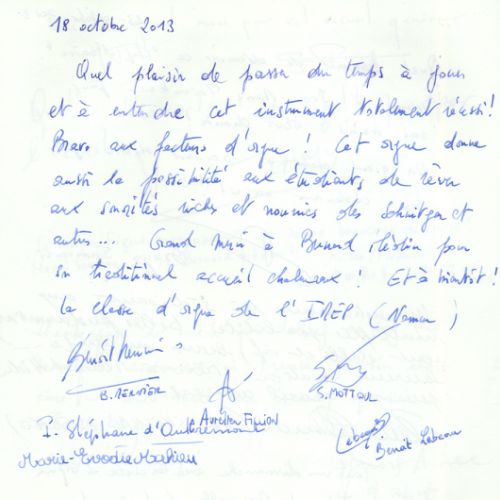 18 octobre 2013
Quel plaisir de passer du temps à jouer
et à entendre cet instrument totalement réussi!
Bravo aux facteurs d'orgue ! Cet orgue donne
aussi la possibilité aux étudiants de rêver
aux sonorités riches et nourries des Schnitger et
autres... Grand merci à Bernard pour
son traditionnel accueil chaleureux ! Et à bientôt !
La classe d'orgue de l'IMEP (Namur)
Benoît
B. MERNIER
S. MOTTOUL
Aurélien Fillion
P. Stéphane d'Oultremont
Benoît Lebeau
Marie-Evodie Mathieu